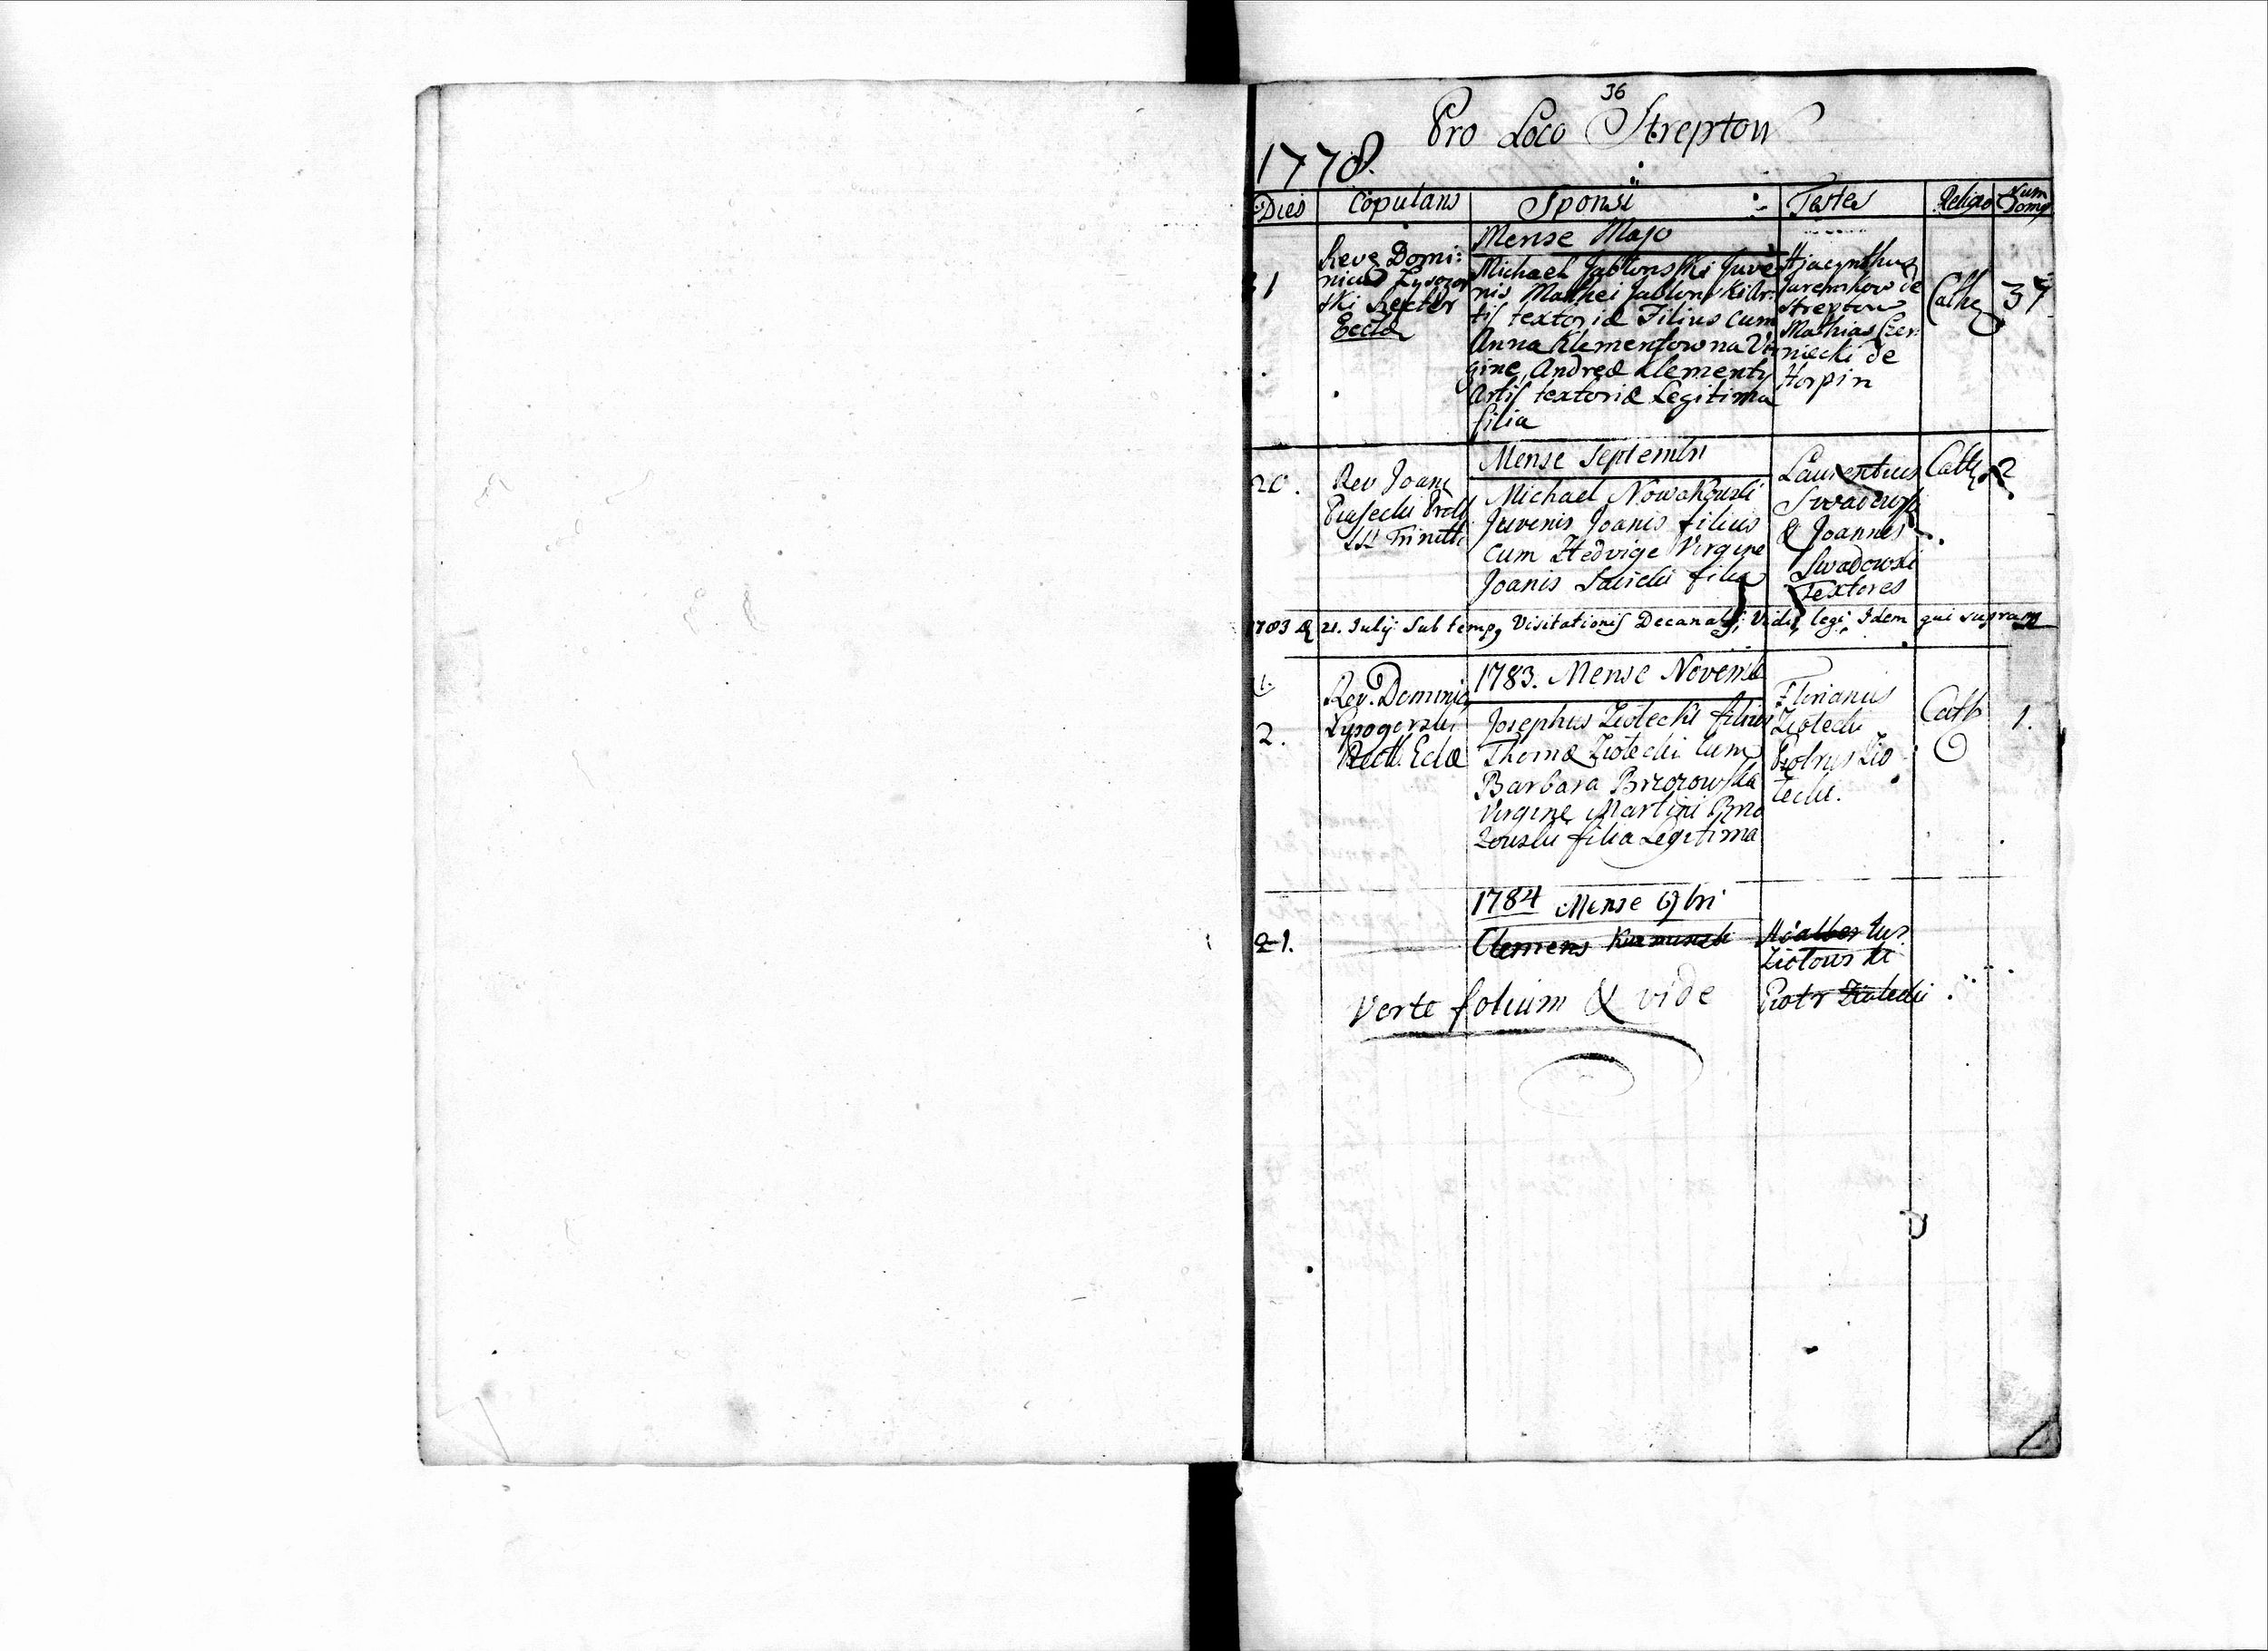 36
Pro Loco Streptow
1778.
Dies Copulans Sponsi Testes Religio Num Domg
Mense Majo
31
Revg Domi:
nicus Lysogor
ski Rector
Eccla
Michael Jablonski Juve
nis Mathei Jablonski Ar:
tis textoriæ Filius cum
Anna Klementowna Vir
gine, Andreæ Klementy
Artis textoriæ Legitima
filia
Hjacynthus
Juremkow de
Streptow
Mathias Czer:
niecki de
Horpin
Cathg
37
Mense Septembri
20.
Rev Joang
Piasecki
SS Trinitt
Michael Nowakowski
Juvenis Joanis filius
cum Hedvige Virgine
Joanis Sawicki filia
Laurentius
Swadowsk
& Joannes
Swadowski
Textores
Cath
2
1783 æ 21. Julij Sub tempg Visitationis Decanalis Vidi, legi, Idem qui supra
1783. Mense Novemb
2.
Rev. Dominic
Lysogorski
Rect. Eclæ
Josephus Ziolecki filius
Thomæ Ziolecki cum
Barbara Brzozowska
Virgine Martini Brzo
zowski filia Legitima
Florianus
Ziolecki
Piotrus Zio
lecki.
Cath
1.
1784 Mense 9bri
21.
Clemens
Adalbertus
Ziolowski
Piotr Ziolecki
Verte folium & vide